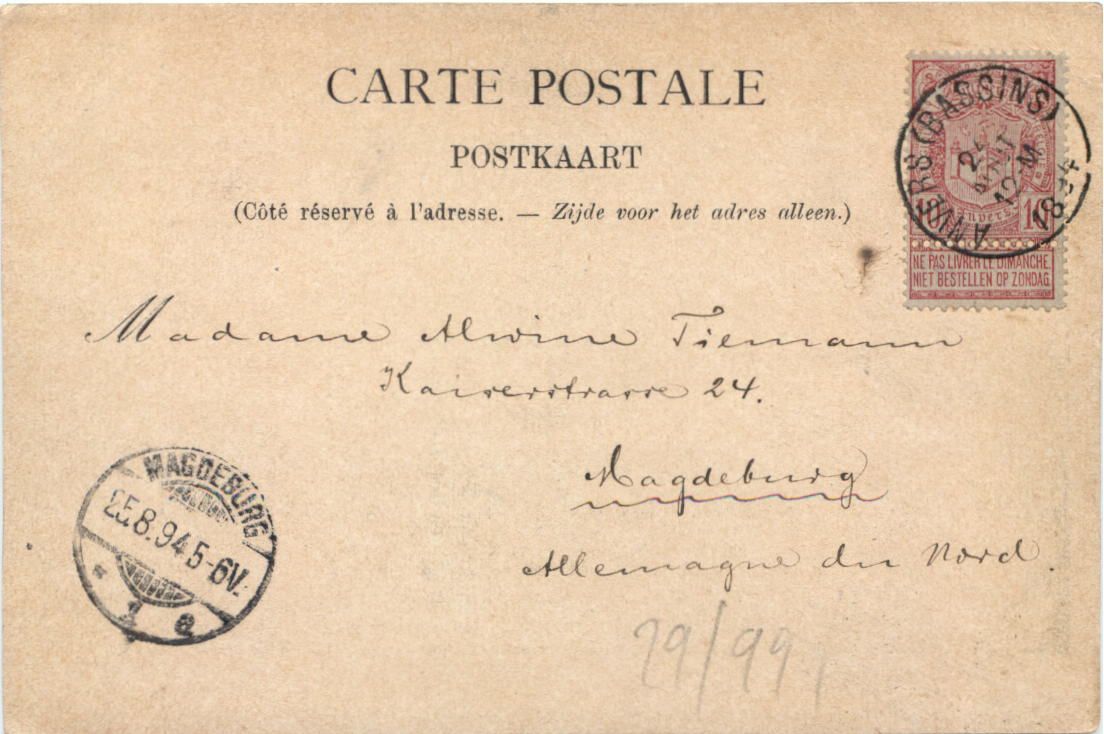 CARTE POSTALE
POSTKAART
(Côté réservé à l'adresse. — Zijde voor het adres alleen.)
ANVERS (BASSINS)
12-M
1894
10 Anvers 10
NE PAS LIVRER LE DIMANCHE.
NIET BESTELLEN OP ZONDAG
Madame Alwine Tiemann
Kaiserstrasse 24.
Magdeburg
Allemagne du Nord.
MAGDEBURG
25.8.94.5-6V.
* 1 a
29/99